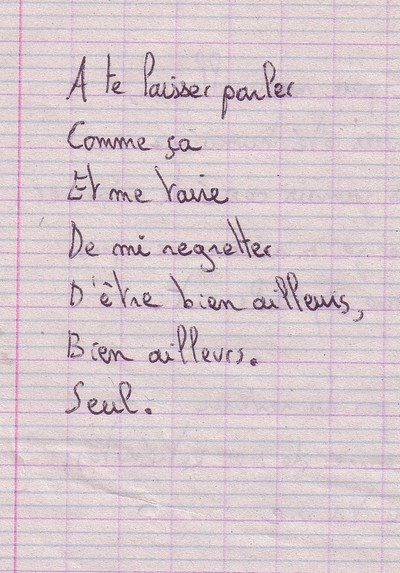 A te laisser parler
Comme ça
Et me taire
De mi regretter
D'être bien ailleurs,
Bien ailleurs.
Seul.